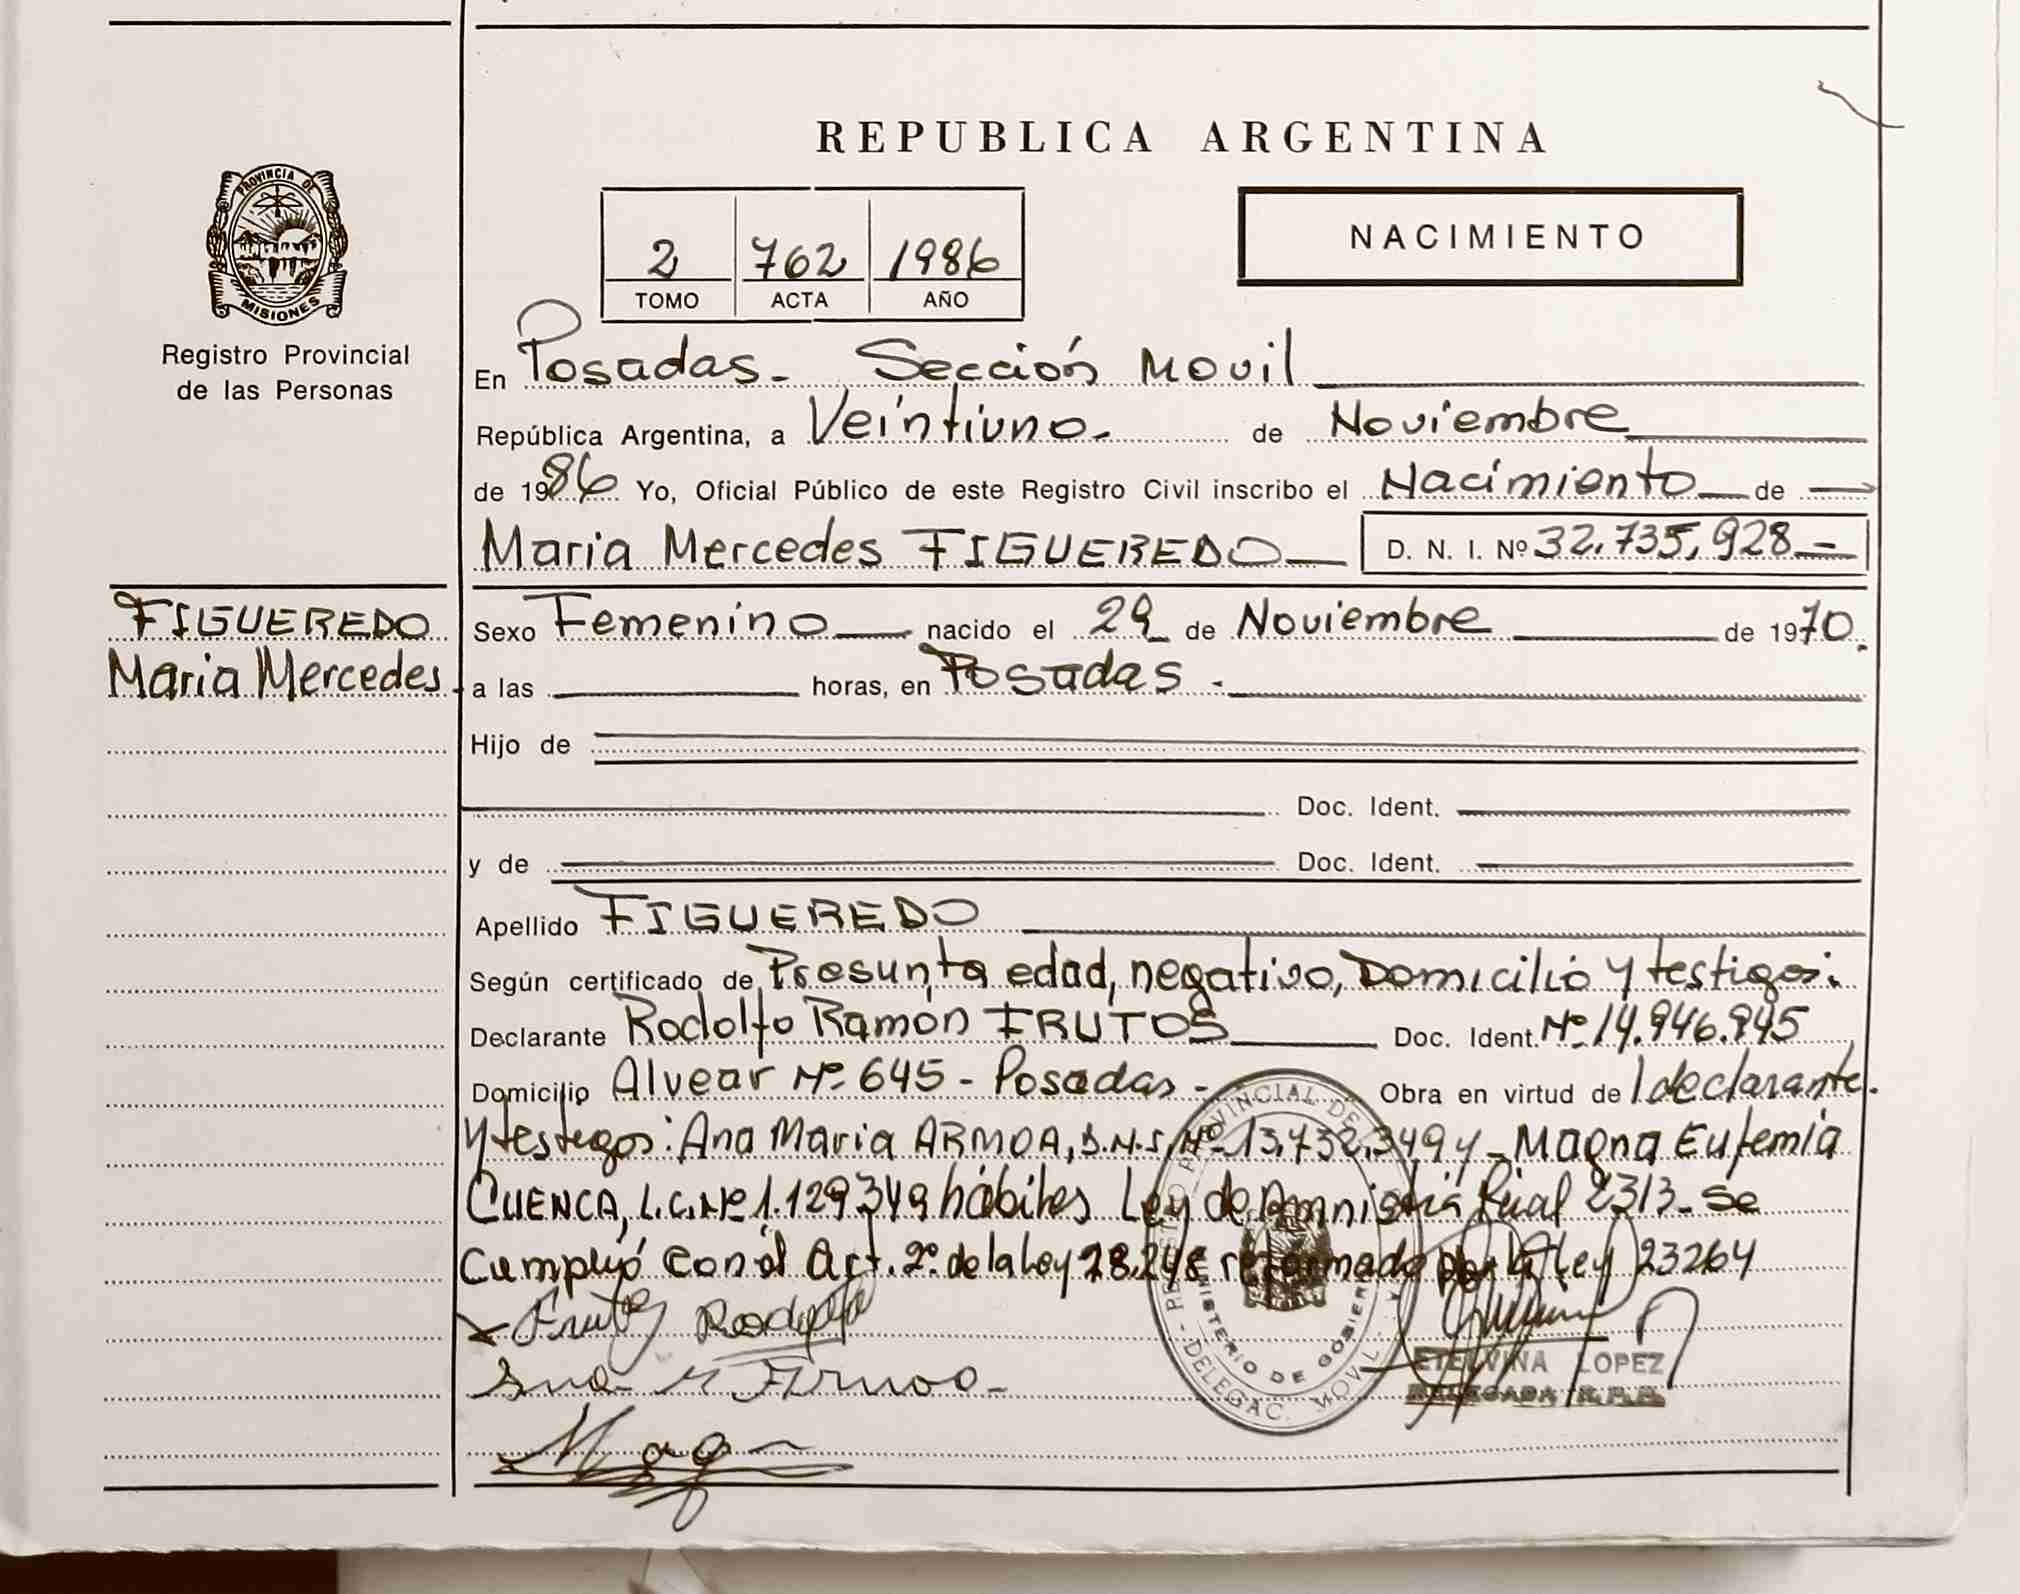 REPUBLICA ARGENTINA
PROVINCIA DE
MISIONES
Registro Provincial
de las Personas
2 762 1986
TOMO ACTA AÑO
NACIMIENTO
En Posadas - Sección Movil
República Argentina, a Veintiuno - de Noviembre
de 1986 Yo, Oficial Público de este Registro Civil inscribo el Nacimiento de
Maria Mercedes FIGUEREDO D. N. I. Nº 32.735.928 -
FIGUEREDO
Maria Mercedes
Sexo Femenino nacido el 29 de Noviembre de 1970.
a las horas, en Posadas -
Hijo de
Doc. Ident.
y de Doc. Ident.
Apellido FIGUEREDO
Según certificado de Presunta edad, negativo, Domicilio y testigos:
Declarante Rodolfo Ramón FRUTOS Doc. Ident. Nº 14.946.945
Domicilio Alvear Nº 645 - Posadas - Obra en virtud de / declarante.
y testigos: Ana Maria ARMOA, D.N.I. Nº 13.732.349 y - Magna Eufemia
CUENCA, L.C. Nº 1.129349 hábiles Ley de Amnistia 2313 - se
Cumplió con el Art. 2º de la Ley reformado por la Ley 23264
Frutos Rodolfo
Ana M Armoa -
ETELVINA LOPEZ
DELEGADA R.P.P.
REGISTRO PROVINCIAL DE
MINISTERIO DE GOBIERNO
- DELEGAC. MOVIL -